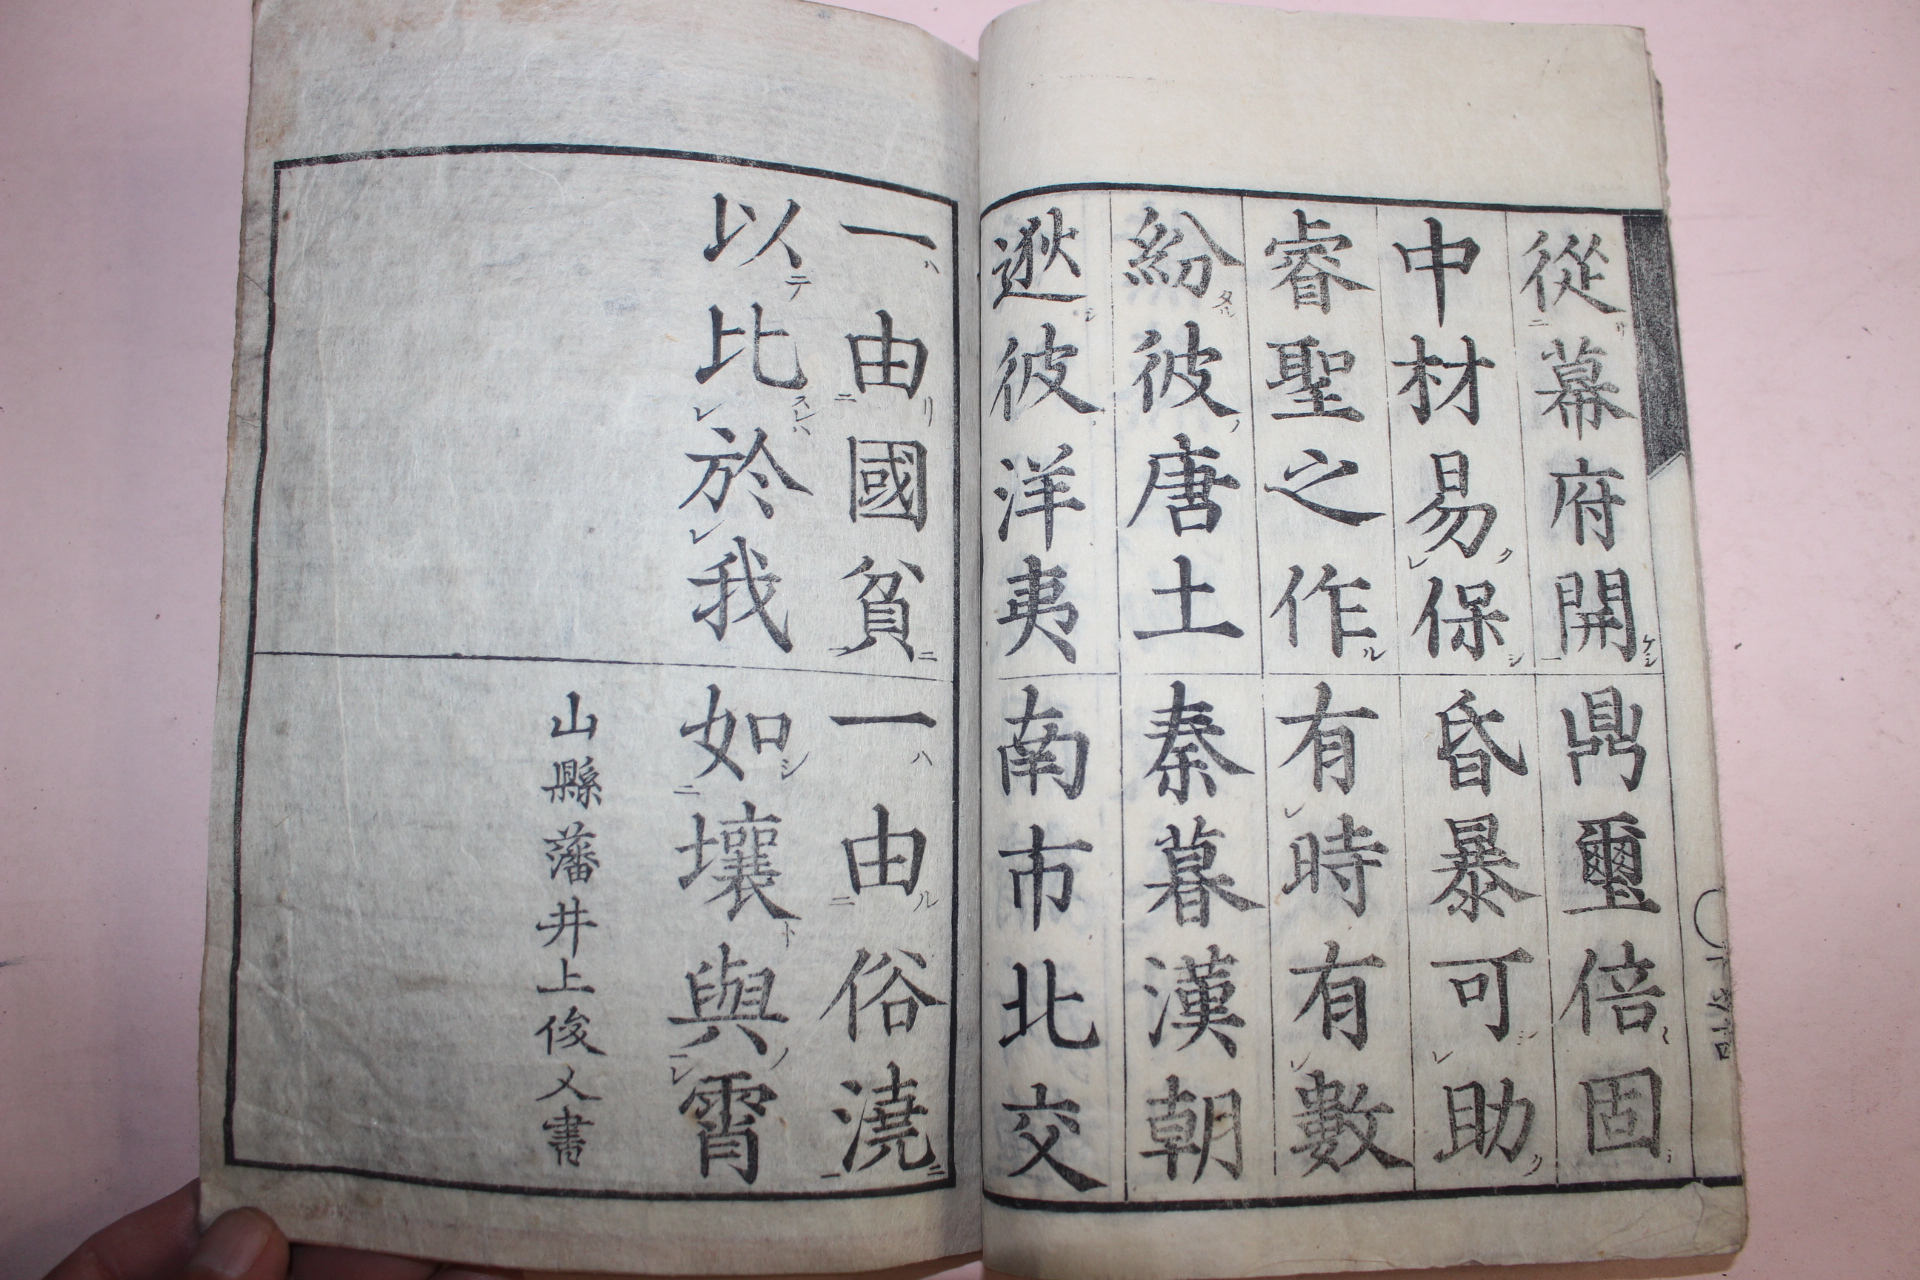 從幕府開鼎璽倍固
中材易保昏暴可助
睿聖之作有時有數
紛彼唐土秦暮漢朝
逖彼洋夷南市北交
一由國貧一由俗澆
以比於我如壤與霄
山縣藩井上俊人書